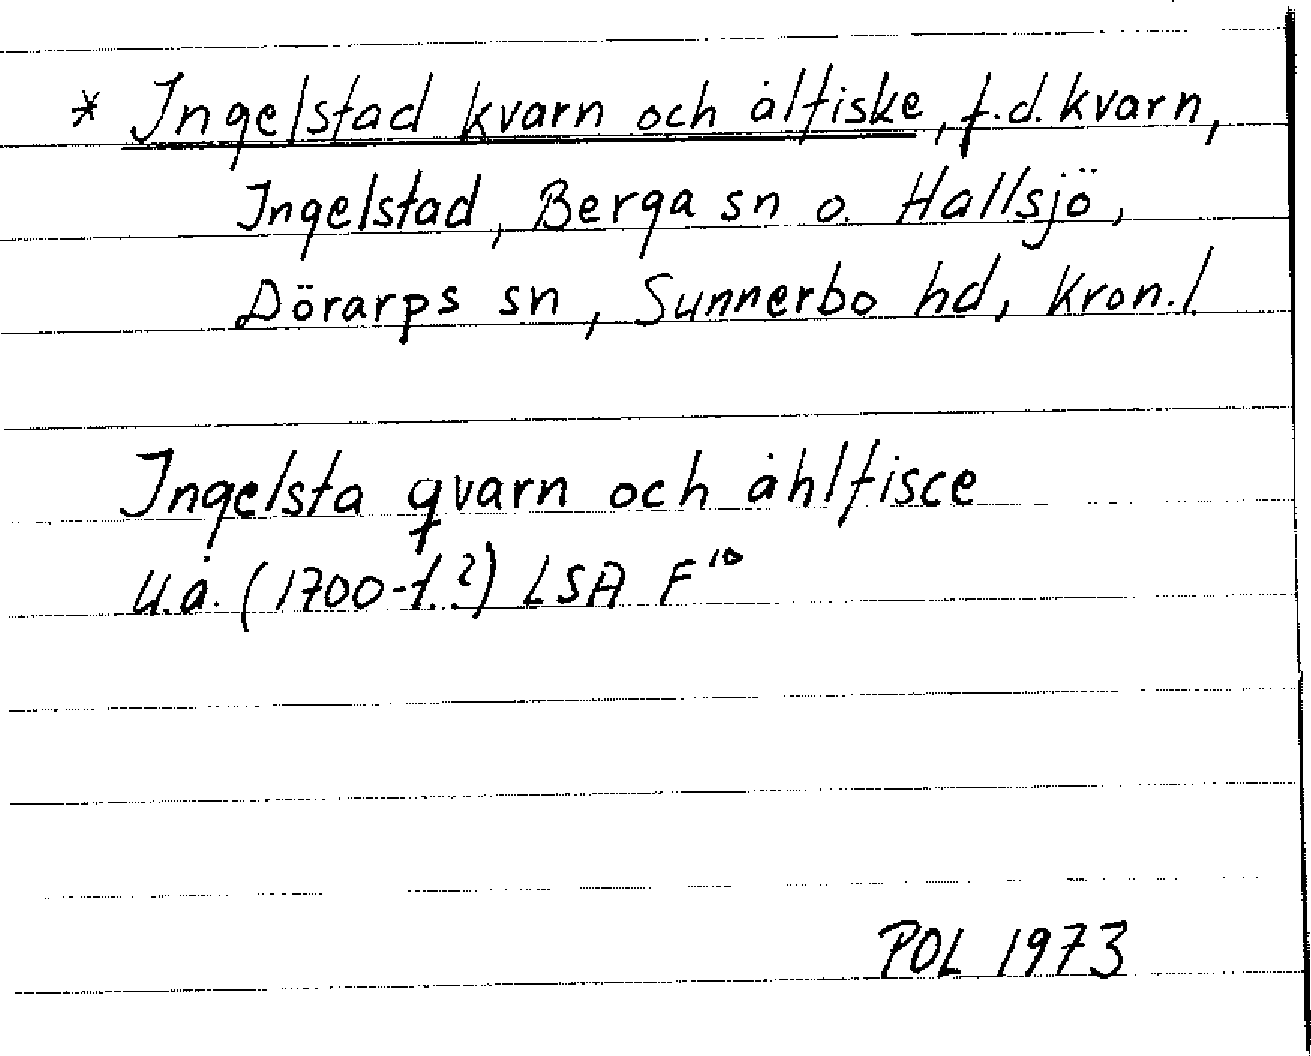 * Ingelstad kvarn och ålfiske, f.d. kvarn,
Ingelstad, Berga sn o. Hallsjö,
Dörarps sn, Sunnerbo hd, Kron.l.
Ingelsta qvarn och åhlfisce
u.å. (1700-t.?) LSA F¹⁰
POL 1973